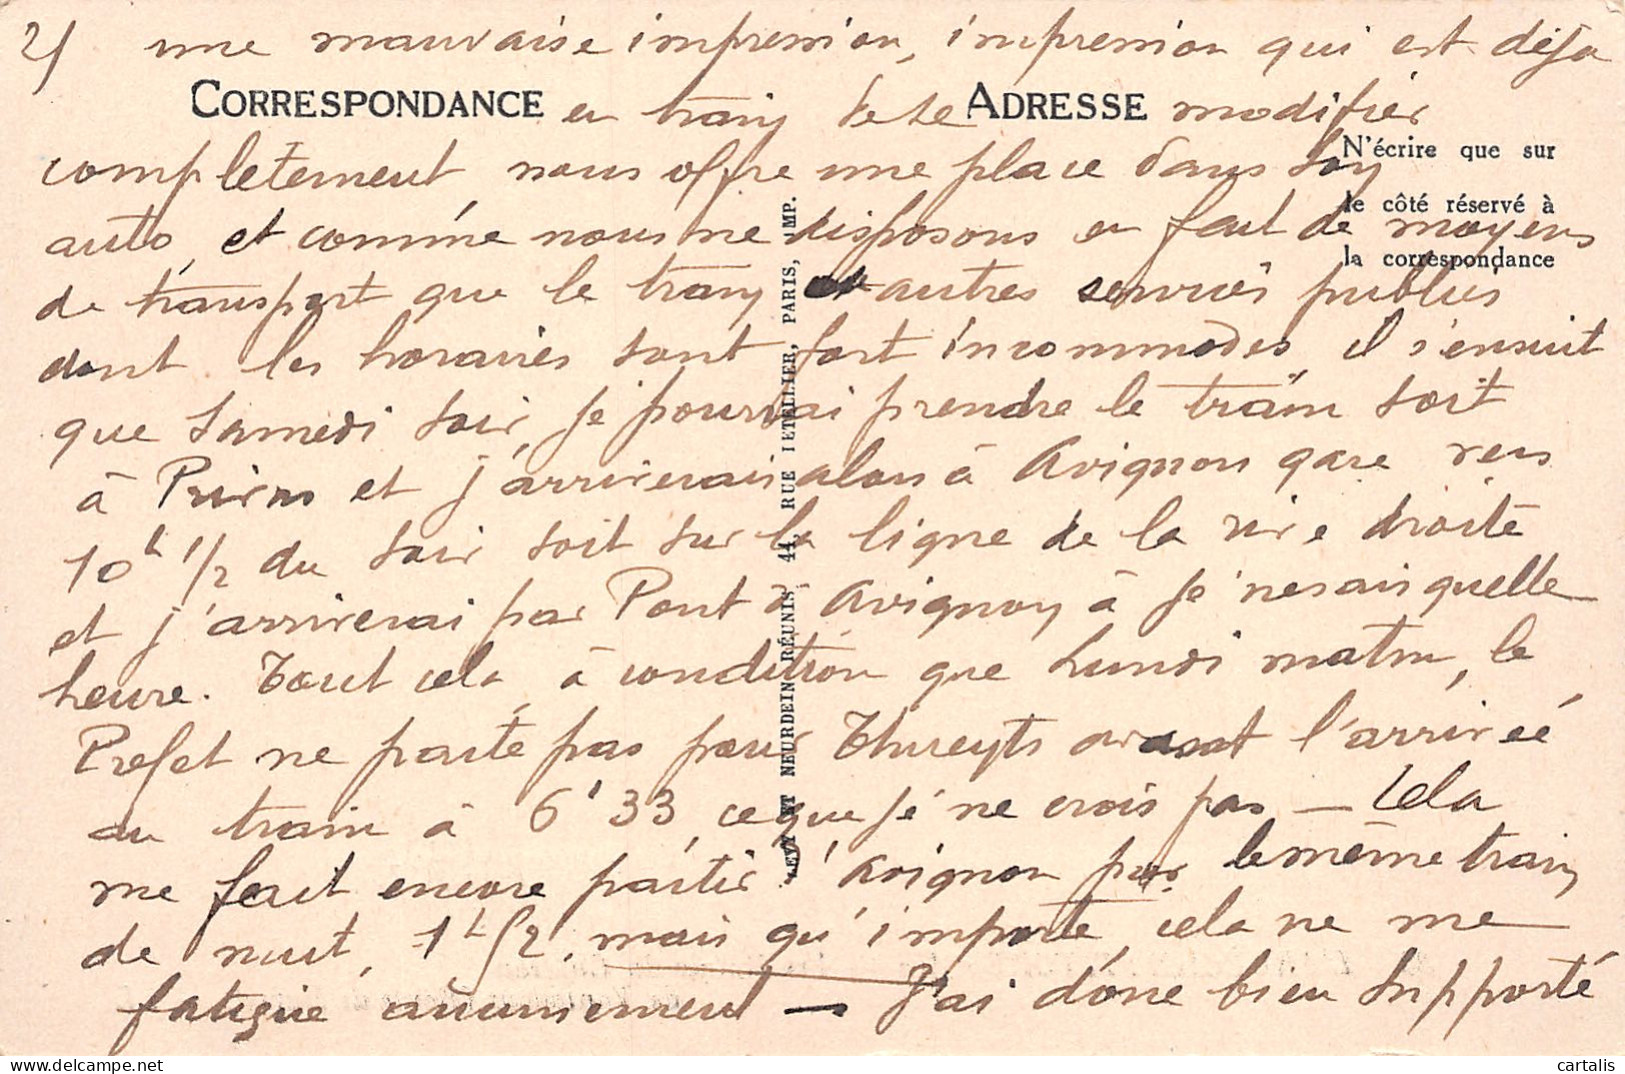 2/ une mauvaise impression, impression qui est déja
CORRESPONDANCE en train de se ADRESSE modifier
N'écrire que sur
complètement nous offre une place dans son
le côté réservé à
auto, et comme nous ne disposons en fait de moyens
la correspondance
de transport que le train et autres services publics
dont les horaires sont fort incommodes, il s'ensuit
que samedi soir, je pourrai prendre le train soit
à Privas et j'arriverais alors à Avignon gare vers
10h 1/2 du soir soit sur la ligne de la rive droite
et j'arriverai par Pont d'Avignon à je ne sais quelle
heure. Tout cela, à condition que lundi matin, le
Préfet ne parte pas pour Thueyts avant l'arrivée
du train à 6h33, ce que je ne crois pas — Cela
me fait encore partir d'Avignon par le même train
de nuit, 1h 1/2, mais qu'importe, cela ne me
fatigue aucunement — J'ai donc bien supporté
LEVY ET NEURDEIN RÉUNIS, 44, RUE LETELLIER, PARIS, IMP.
cartalis